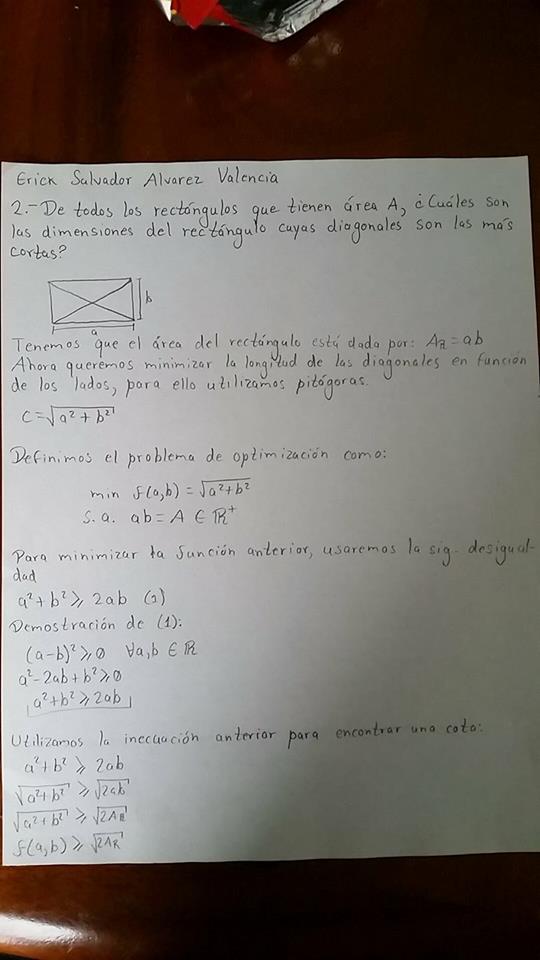 Erick Salvador Alvarez Valencia
2.- De todos los rectángulos que tienen área A, ¿Cuáles son
las dimensiones del rectángulo cuyas diagonales son las más
cortas?
b
a
Tenemos que el área del rectángulo está dada por: A_R = ab
Ahora queremos minimizar la longitud de las diagonales en función
de los lados, para ello utilizamos pitágoras.
C = √(a² + b²)
Definimos el problema de optimización como:
min f(a,b) = √(a²+b²)
s.a. ab = A ∈ ℝ⁺
Para minimizar la función anterior, usaremos la sig. desigual-
dad
a² + b² ≥ 2ab (1)
Demostración de (1):
(a-b)² ≥ 0 ∀a,b ∈ ℝ
a² - 2ab + b² ≥ 0
a² + b² ≥ 2ab
Utilizamos la inecuación anterior para encontrar una cota:
a² + b² ≥ 2ab
√(a² + b²) ≥ √(2ab)
√(a² + b²) ≥ √(2A_R)
f(a,b) ≥ √(2A_R)